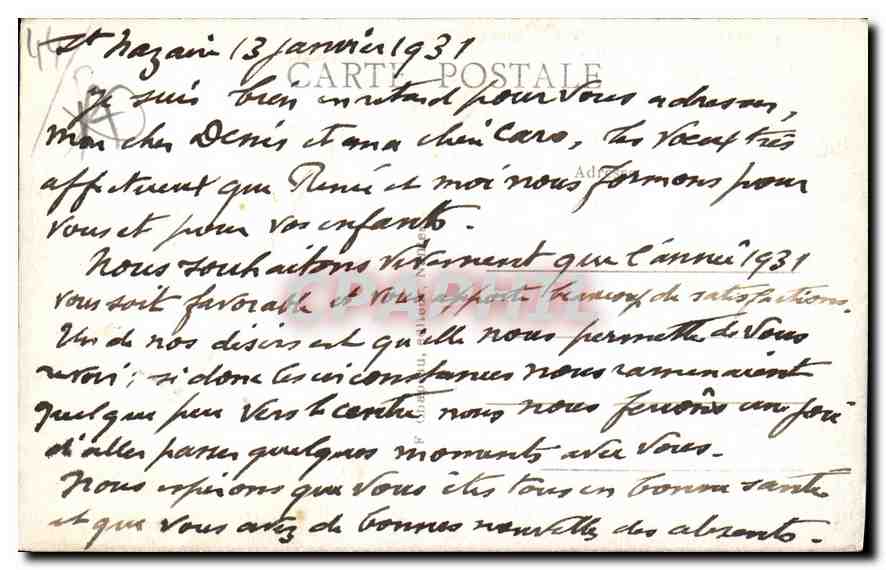 44
St Nazaire 13 janvier 1931
CARTE POSTALE
Je suis bien en retard pour vous adresser,
mon cher Denis et ma chère Caro, les voeux très
Adresse
affectueux que Renée et moi nous formons pour
vous et pour vos enfants.
Nous souhaitons vivement que l'année 1931
vous soit favorable et vous apporte beaucoup de satisfactions.
CPAPHIL
Un de nos désirs est qu'elle nous permette de vous
revoir ; si donc les circonstances nous ramenaient
quelque peu vers le centre nous nous ferions une joie
d'aller passer quelques moments avec vous.
Nous espérons que vous êtes tous en bonne santé
et que vous avez de bonnes nouvelles des absents.
F. Chapeau, éditeur, Nantes